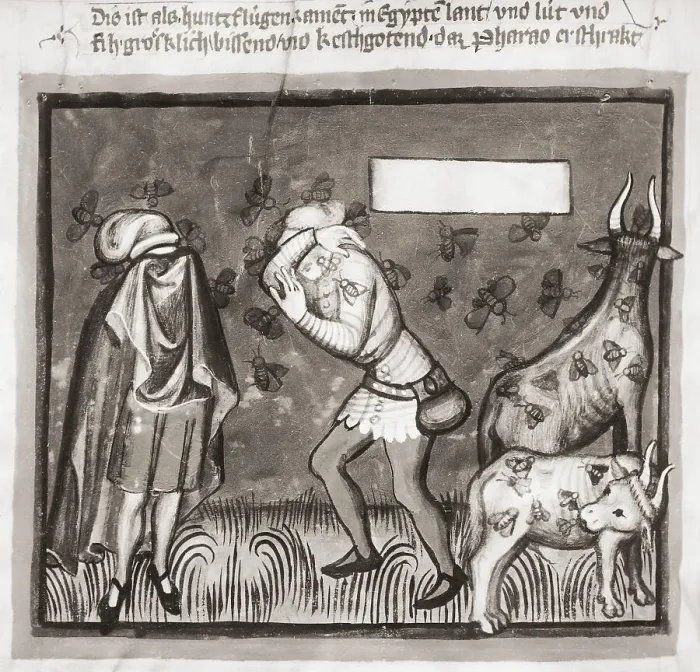 Dis ist als huntzflúgen kament in Egypten lant vnd lút vnd
fih groͤsklich bissend vnd keschgotend daz Pharao erschrakt